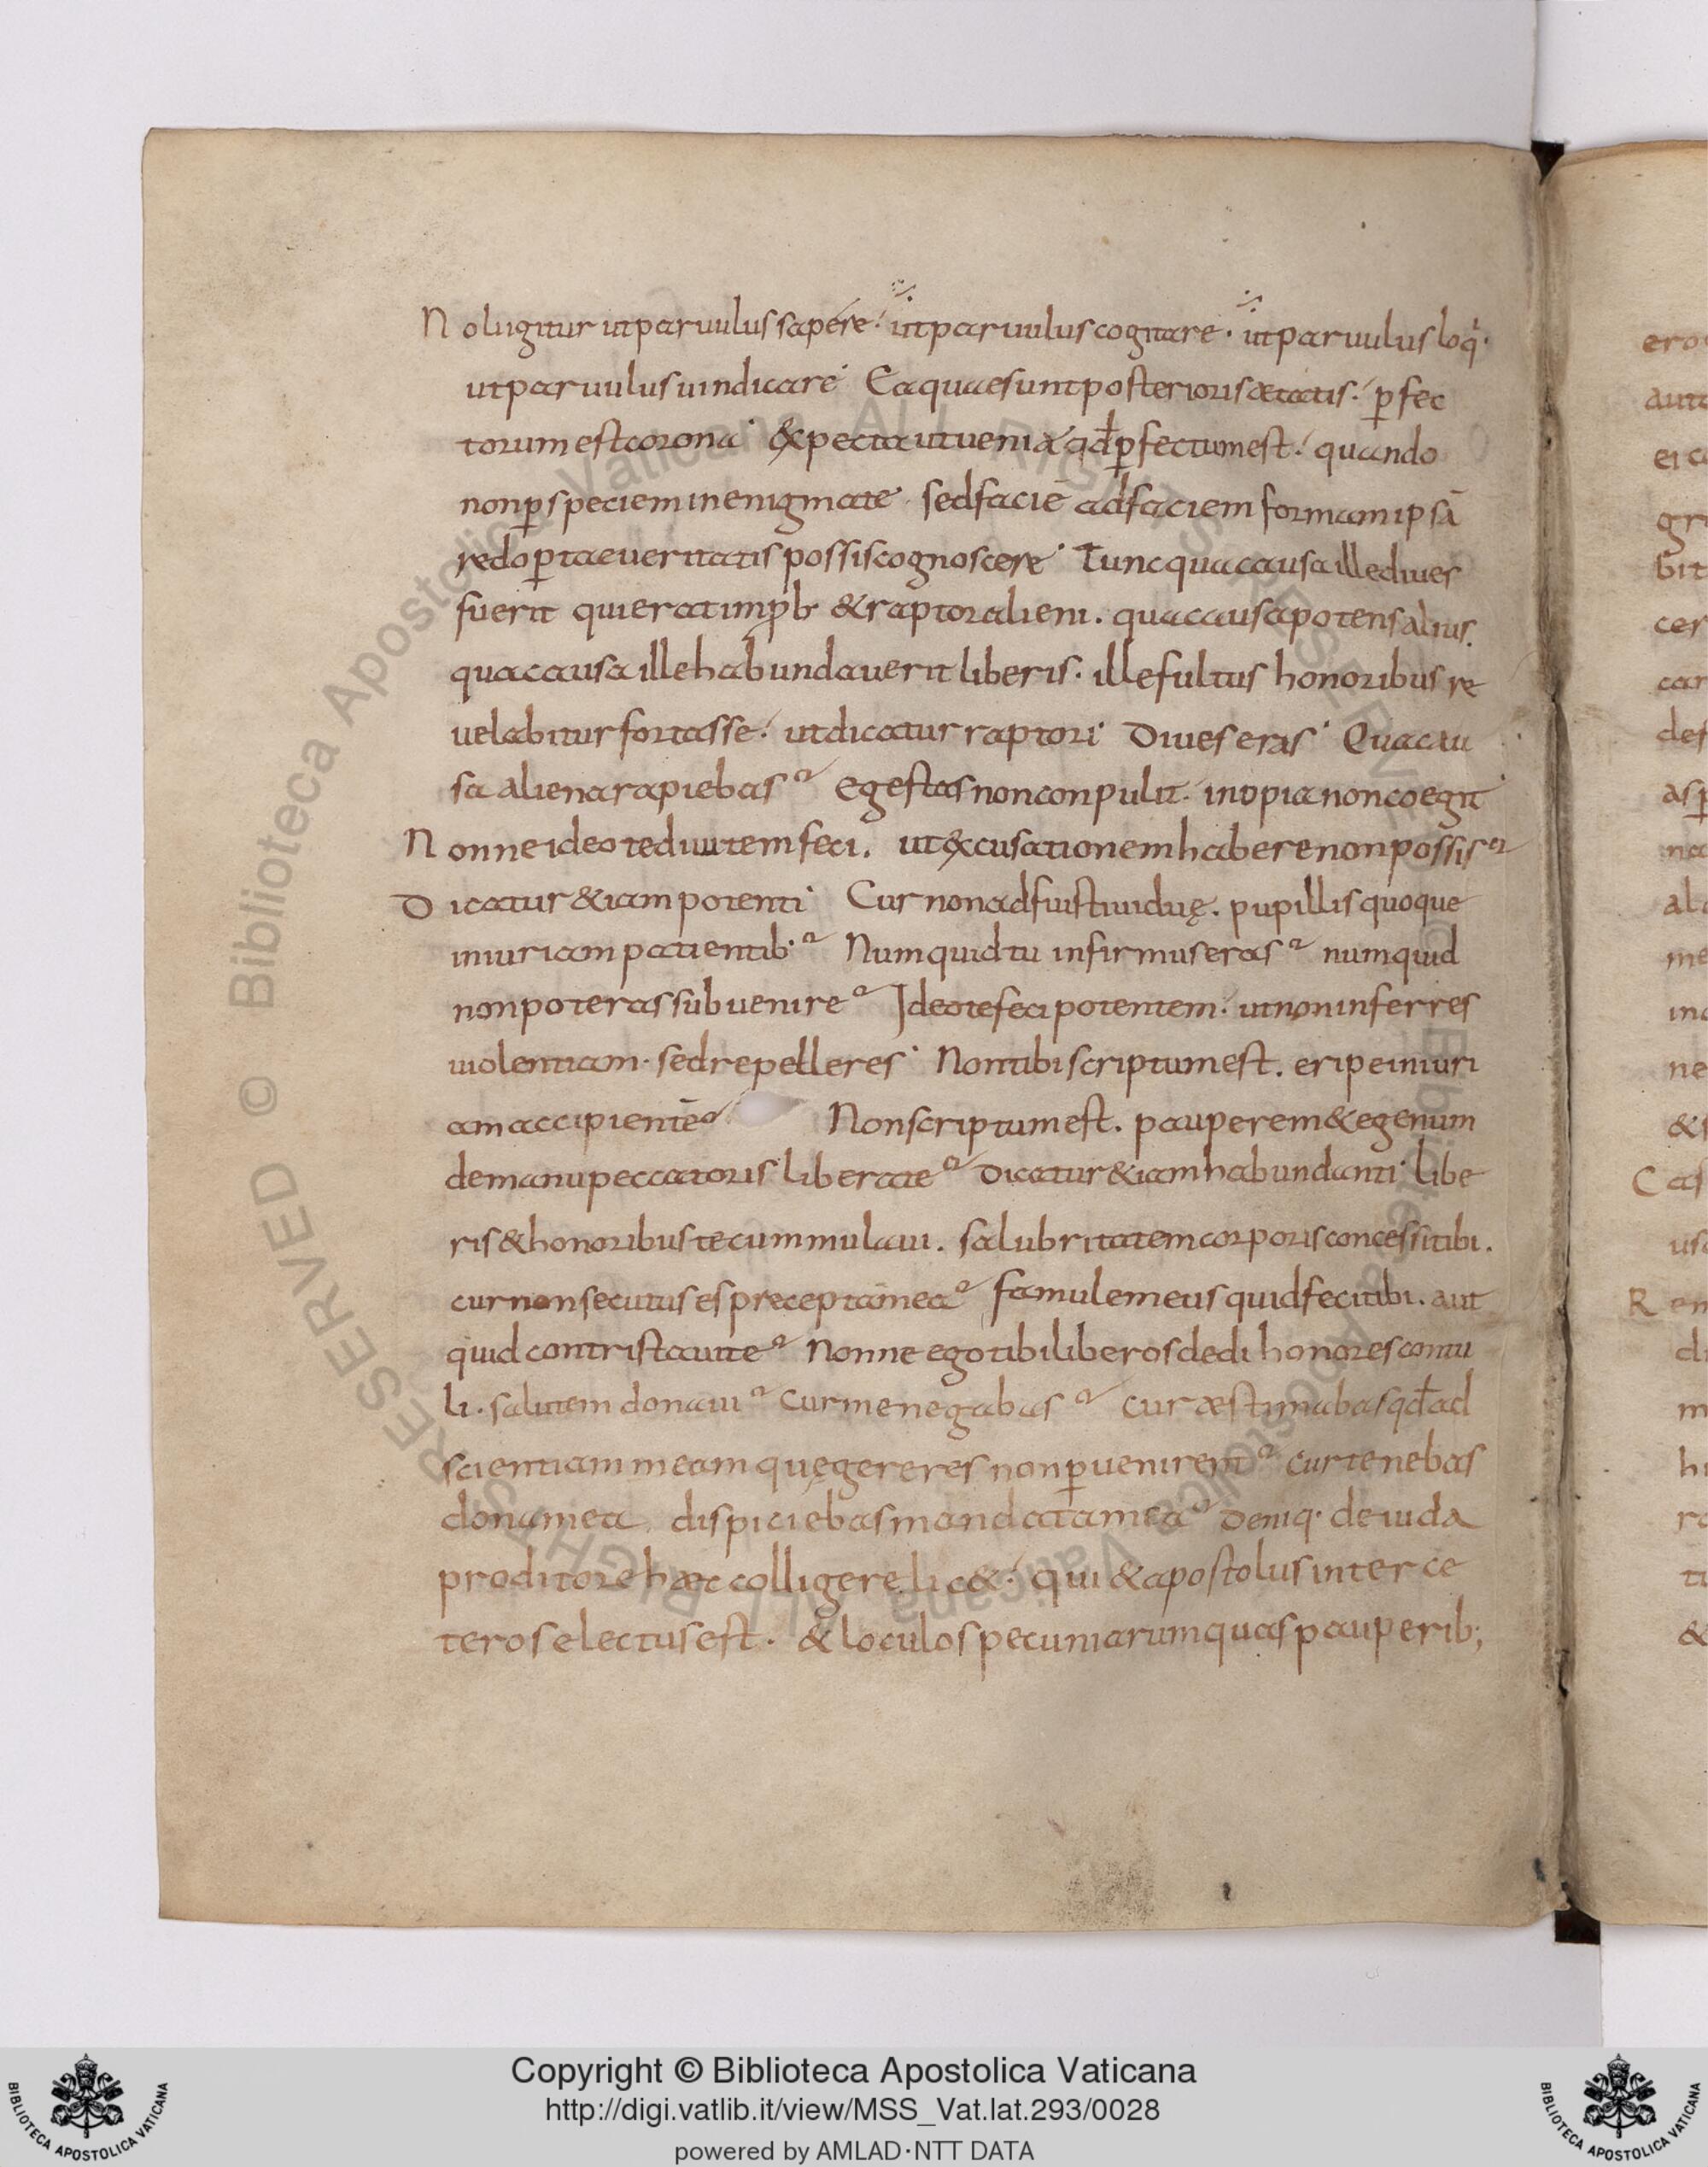 Noli igitur ut paruulus sapere. ut paruulus cogitare. ut paruulus loqi.
ut paruulus uindicare. Ea quae sunt posterioris ætatis. ꝑfec
torum est corona. Expecta ut ueniat qđ ꝑfectum est. quando
non ꝑ speciem in enigmate. sed faciē ad faciem formam ipsā
redoꝑtae ueritatis possis cognoscere. Tunc qua causa ille diues
fuerit qui erat & raptor alieni. qua causa potens alius.
qua causa ille habundauerit liberis. ille fultus honoribus re
uelabitur fortasse. ut dicatur raptori. Diues eras. Qua cau
sa aliena rapiebas? Egestas non conpulit. inopia non coegit
Nonne ideo te diuitem feci. ut excusationem habere non possis?
Dicatur &iam potenti. Cur non adfuisti uiduę. pupillis quoque
iniuriam patientib.? Numquid tu infirmus eras? numquid
non poteras subuenire? Ideo te feci potentem. ut non inferres
uiolentiam. sed repelleres. Non tibi scriptum est. eripe iniuri
am accipientē? Non scriptum est. pauperem & egenum
de manu peccatoris liberate? Dicatur &iam habundanti. libe
ris & honoribus te cummulaui. salubritatem corporis concessi tibi.
cur non secutus es precepta mea? famule meus quid feci tibi. aut
quid contristaui te? Nonne ego tibi liberos dedi honores contu
li. salutem donaui? cur me negabas? cur æstimabas qđ ad
scientiam meam quę gereres non ꝑuenirent? cur tenebas
dona mea dispiciebas mandata mea? Deniq. de iuda
proditore hæc colligere lic&. qui & apostolus inter ce
teros electus est. & loculos pecuniarum quas pauperib;
© Biblioteca Apostolica Vaticana ALL RIGHTS RESERVED
Copyright © Biblioteca Apostolica Vaticana
http://digi.vatlib.it/view/MSS_Vat.lat.293/0028
powered by AMLAD·NTT DATA
BIBLIOTECA APOSTOLICA VATICANA
BIBLIOTECA APOSTOLICA VATICANA